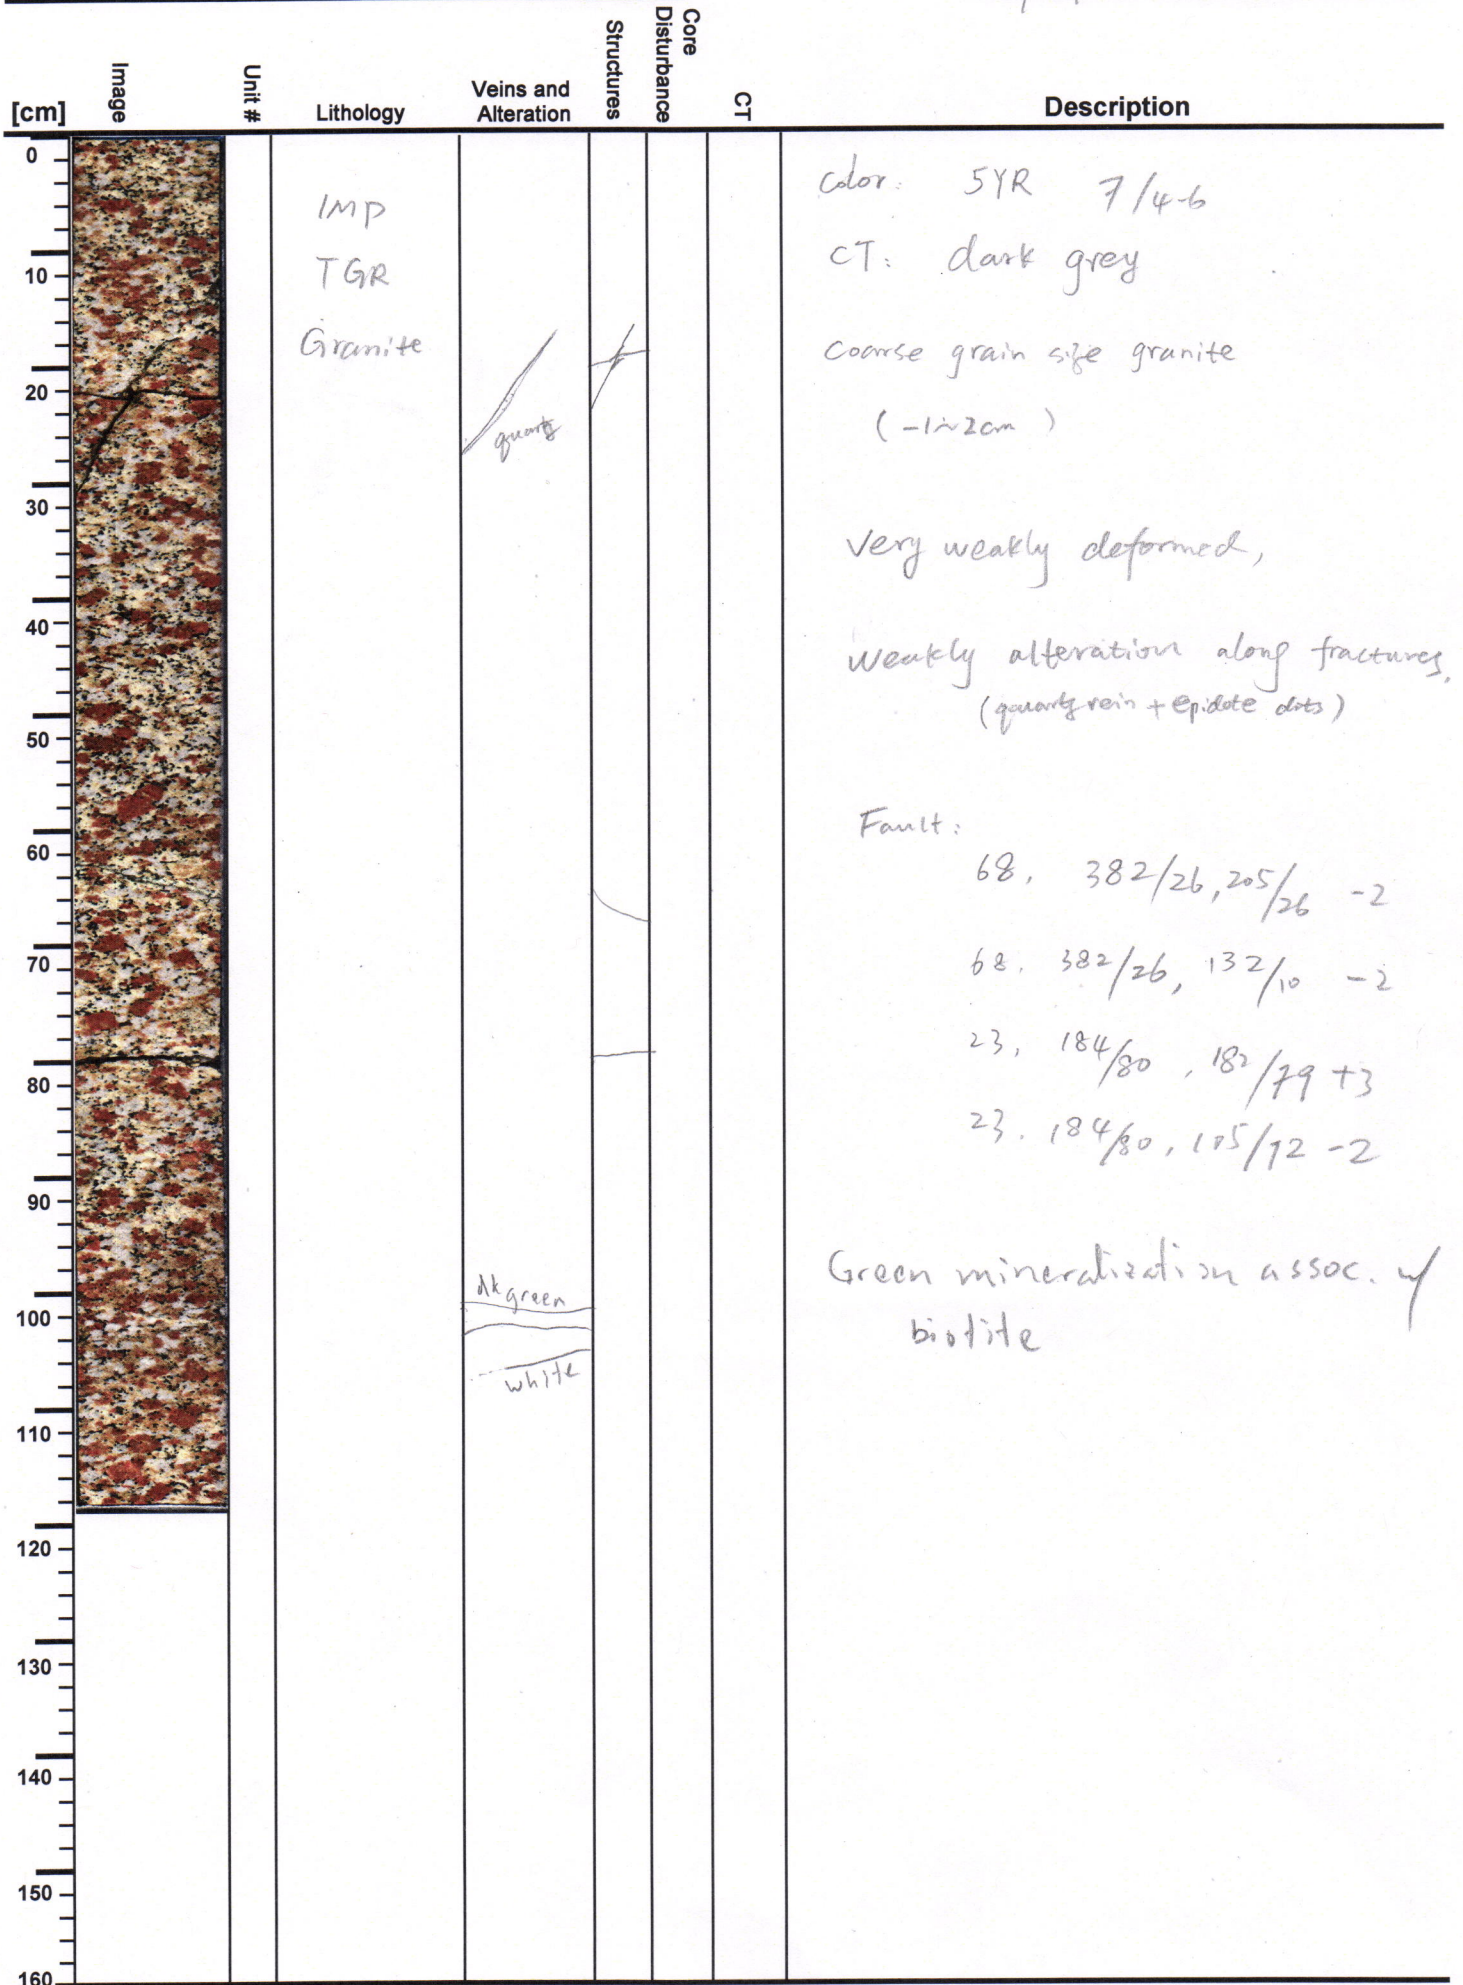 [cm]
Image
Unit #
Lithology
Veins and
Alteration
Structures
Core
Disturbance
CT
Description
0
10
20
30
40
50
60
70
80
90
100
110
120
130
140
150
160
IMP
TGR
Granite
quartz
dk green
white
Color: 5YR 7/4-6
CT: dark grey
Coarse grain size granite
(-1~2cm )
Very weakly deformed,
Weakly alteration along fractures,
(quartz vein + epidote dots)
Fault:
68, 382/26, 205/26 -2
68. 382/26, 132/10 -2
23, 184/80, 182/79 +3
23. 184/80, /12 -2
Green mineralization assoc. w/
biotite